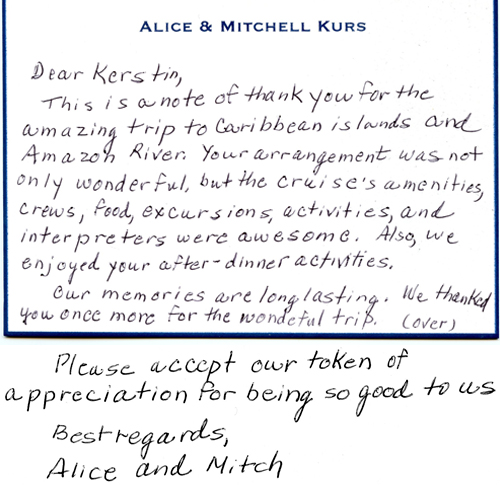 ALICE & MITCHELL KURS
Dear Kerstin,
This is a note of thank you for the
amazing trip to Caribbean islands and
Amazon River. Your arrangement was not
only wonderful, but the cruise's amenities,
crews, food, excursions, activities, and
interpreters were awesome. Also, we
enjoyed your after-dinner activities.
Our memories are long lasting. We thanked
you once more for the wondeful trip. (over)
Please accept our token of
appreciation for being so good to us
Best regards,
Alice and Mitch